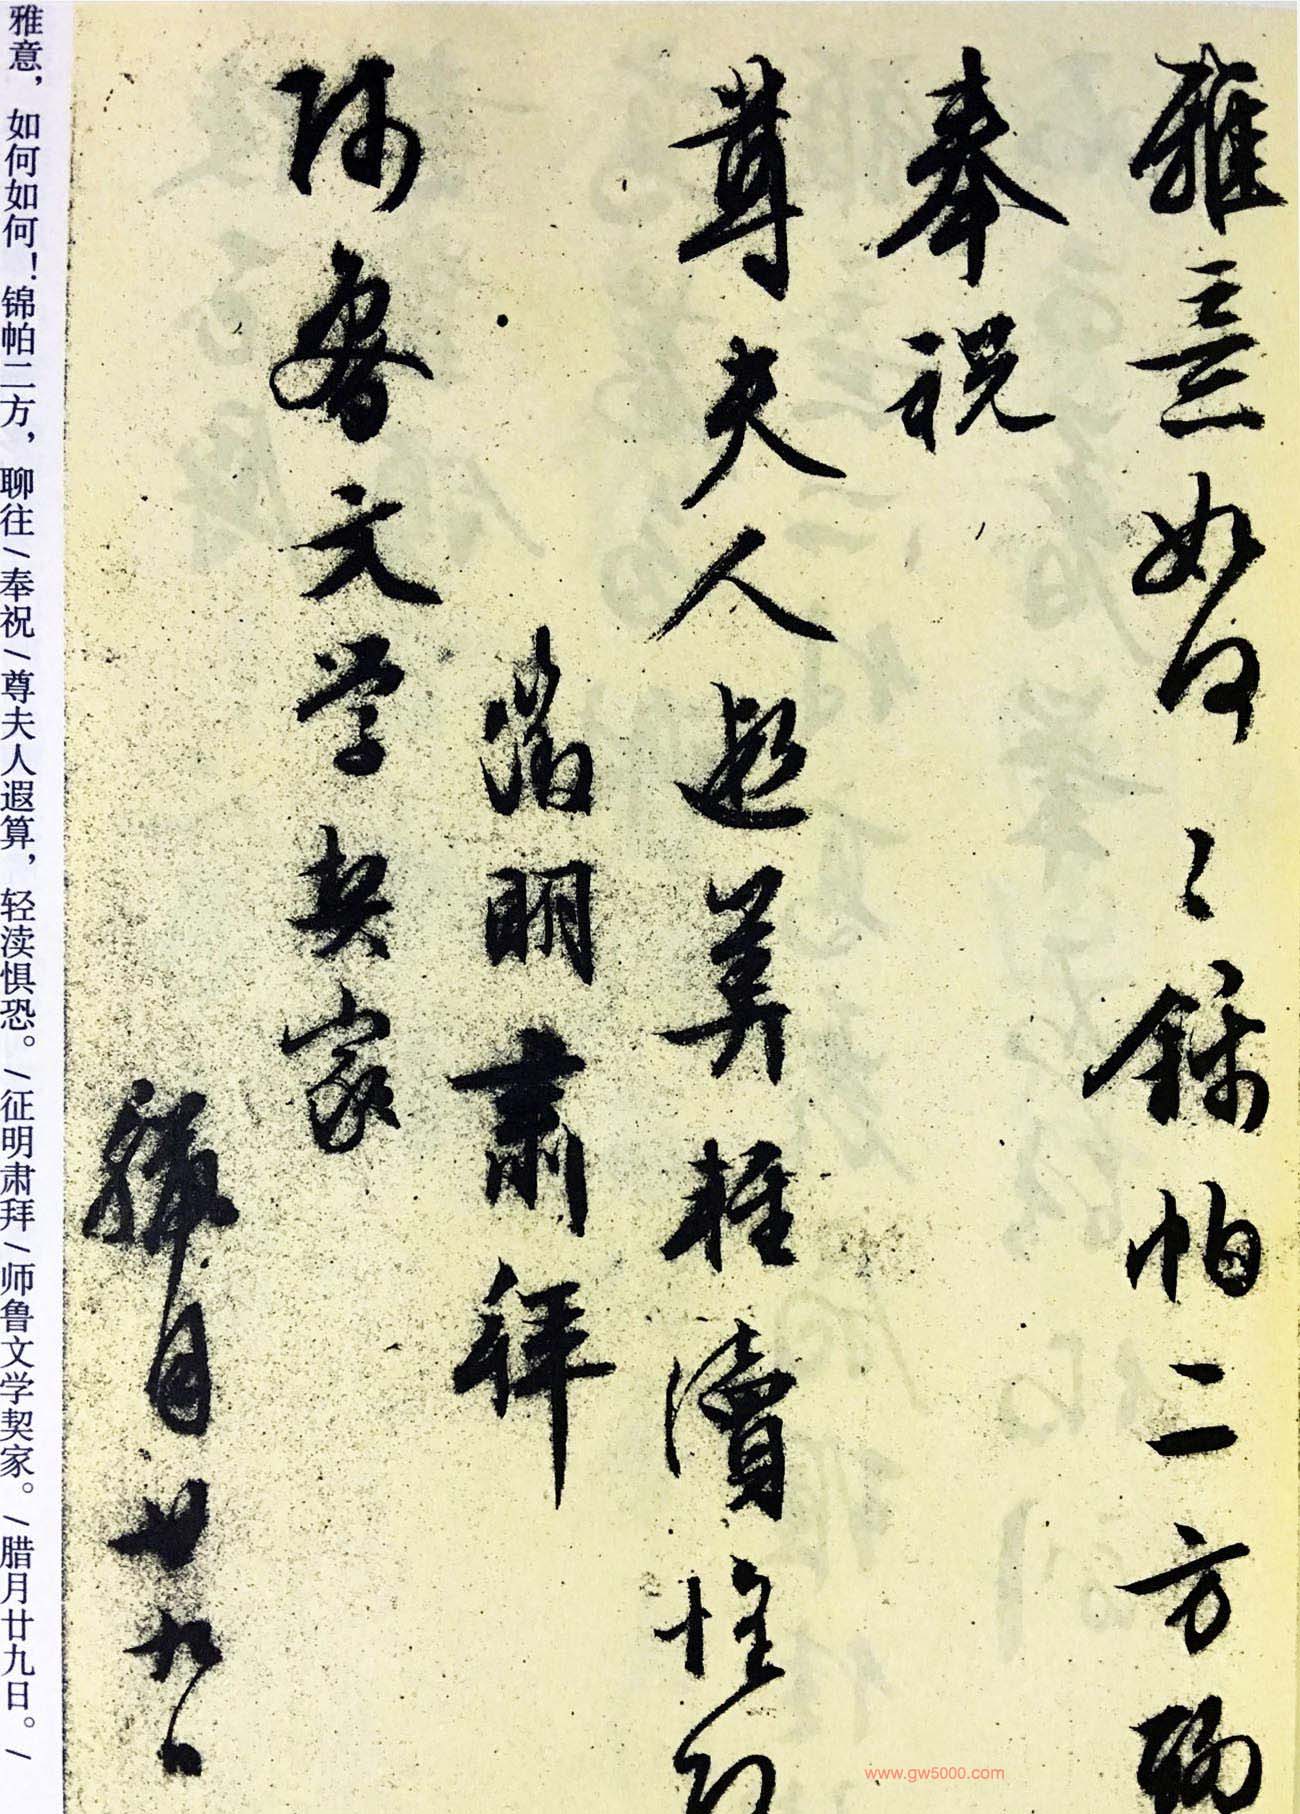 雅意如何〻錦帕二方聊
奉祝
尊夫人遐算輕瀆惶恐
徵明肅拜
師魯文學契家
臘月廿九日
雅意，如何如何！锦帕二方，聊往/奉祝/尊夫人遐算，轻渎惧恐。/征明肃拜/师鲁文学契家。/腊月廿九日。/
www.gw5000.com